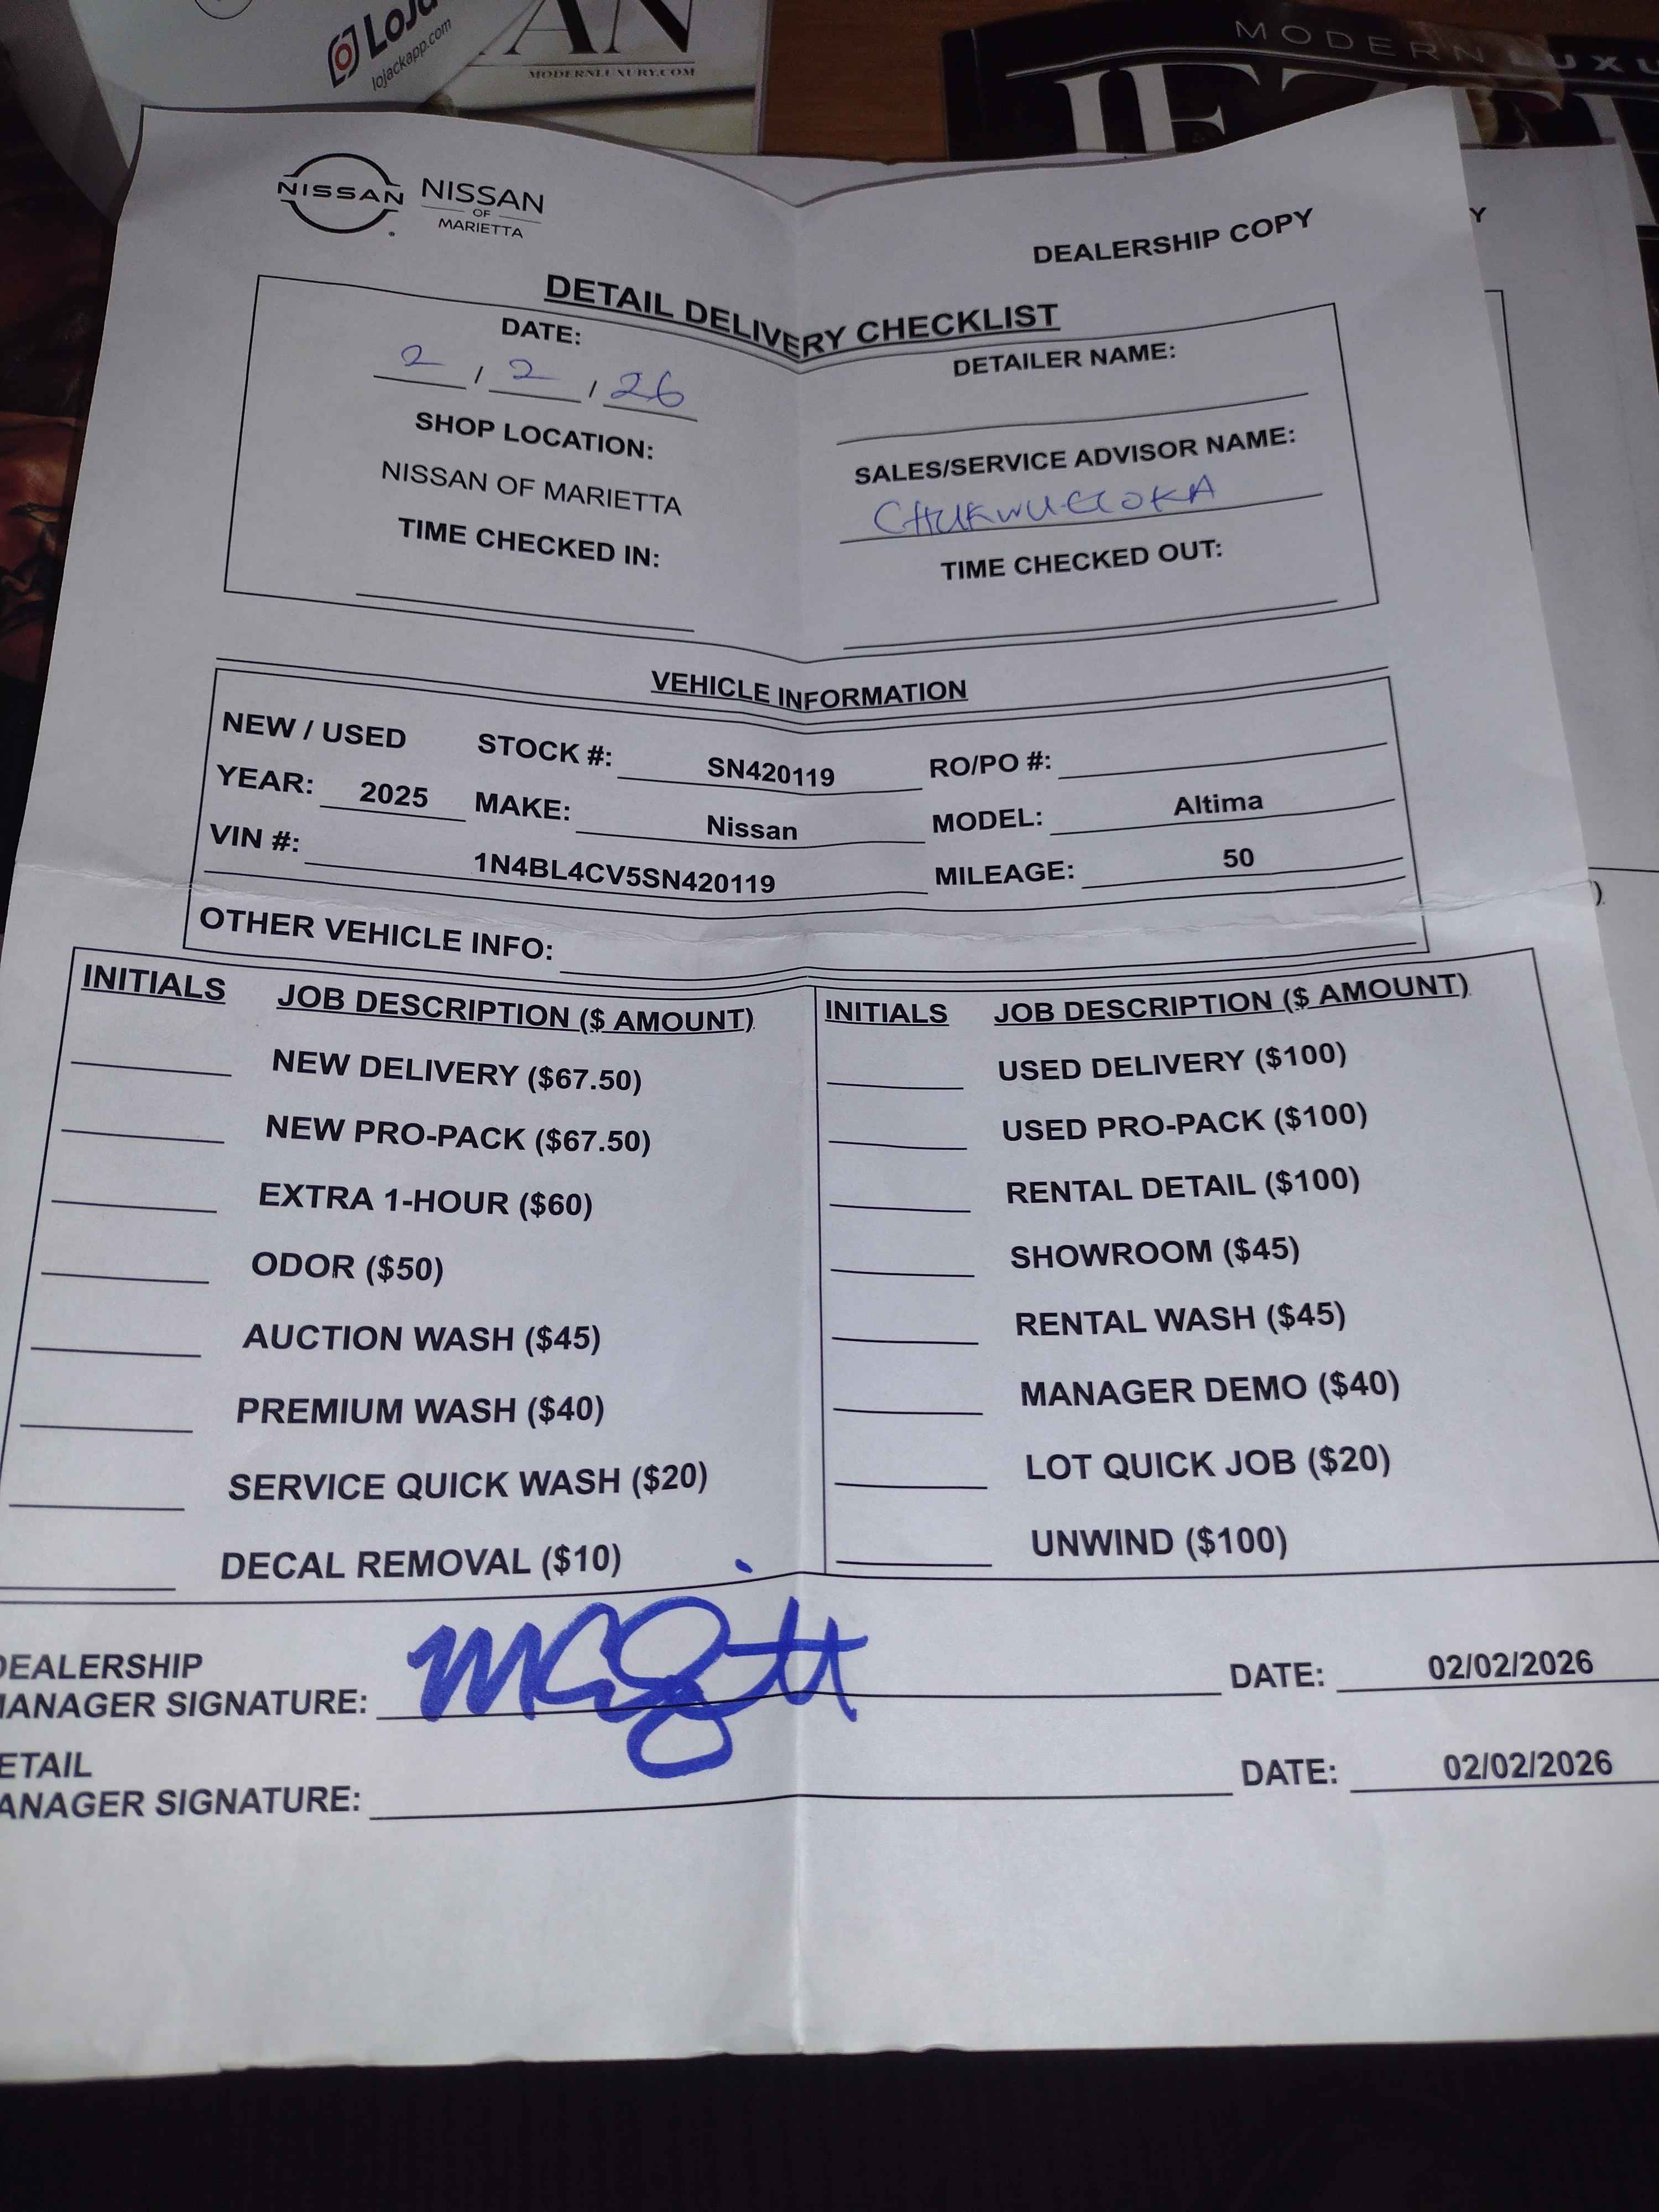 LOJA
lojackapp.com
AN
MODERNLUXURY.COM
MODERN LUXU
NISSAN
NISSAN
OF
MARIETTA
DEALERSHIP COPY
Y
DETAIL DELIVERY CHECKLIST
DATE:
2 / 2 / 26
DETAILER NAME:
SHOP LOCATION:
NISSAN OF MARIETTA
SALES/SERVICE ADVISOR NAME:
TIME CHECKED IN:
TIME CHECKED OUT:
VEHICLE INFORMATION
NEW / USED STOCK #: SN420119 RO/PO #:
YEAR: 2025 MAKE: Nissan MODEL: Altima
VIN #: 1N4BL4CV5SN420119 MILEAGE: 50
OTHER VEHICLE INFO:
INITIALS JOB DESCRIPTION ($ AMOUNT)
NEW DELIVERY ($67.50)
NEW PRO-PACK ($67.50)
EXTRA 1-HOUR ($60)
ODOR ($50)
AUCTION WASH ($45)
PREMIUM WASH ($40)
SERVICE QUICK WASH ($20)
DECAL REMOVAL ($10)
INITIALS JOB DESCRIPTION ($ AMOUNT)
USED DELIVERY ($100)
USED PRO-PACK ($100)
RENTAL DETAIL ($100)
SHOWROOM ($45)
RENTAL WASH ($45)
MANAGER DEMO ($40)
LOT QUICK JOB ($20)
UNWIND ($100)
DEALERSHIP
MANAGER SIGNATURE: DATE: 02/02/2026
ETAIL
ANAGER SIGNATURE: DATE: 02/02/2026